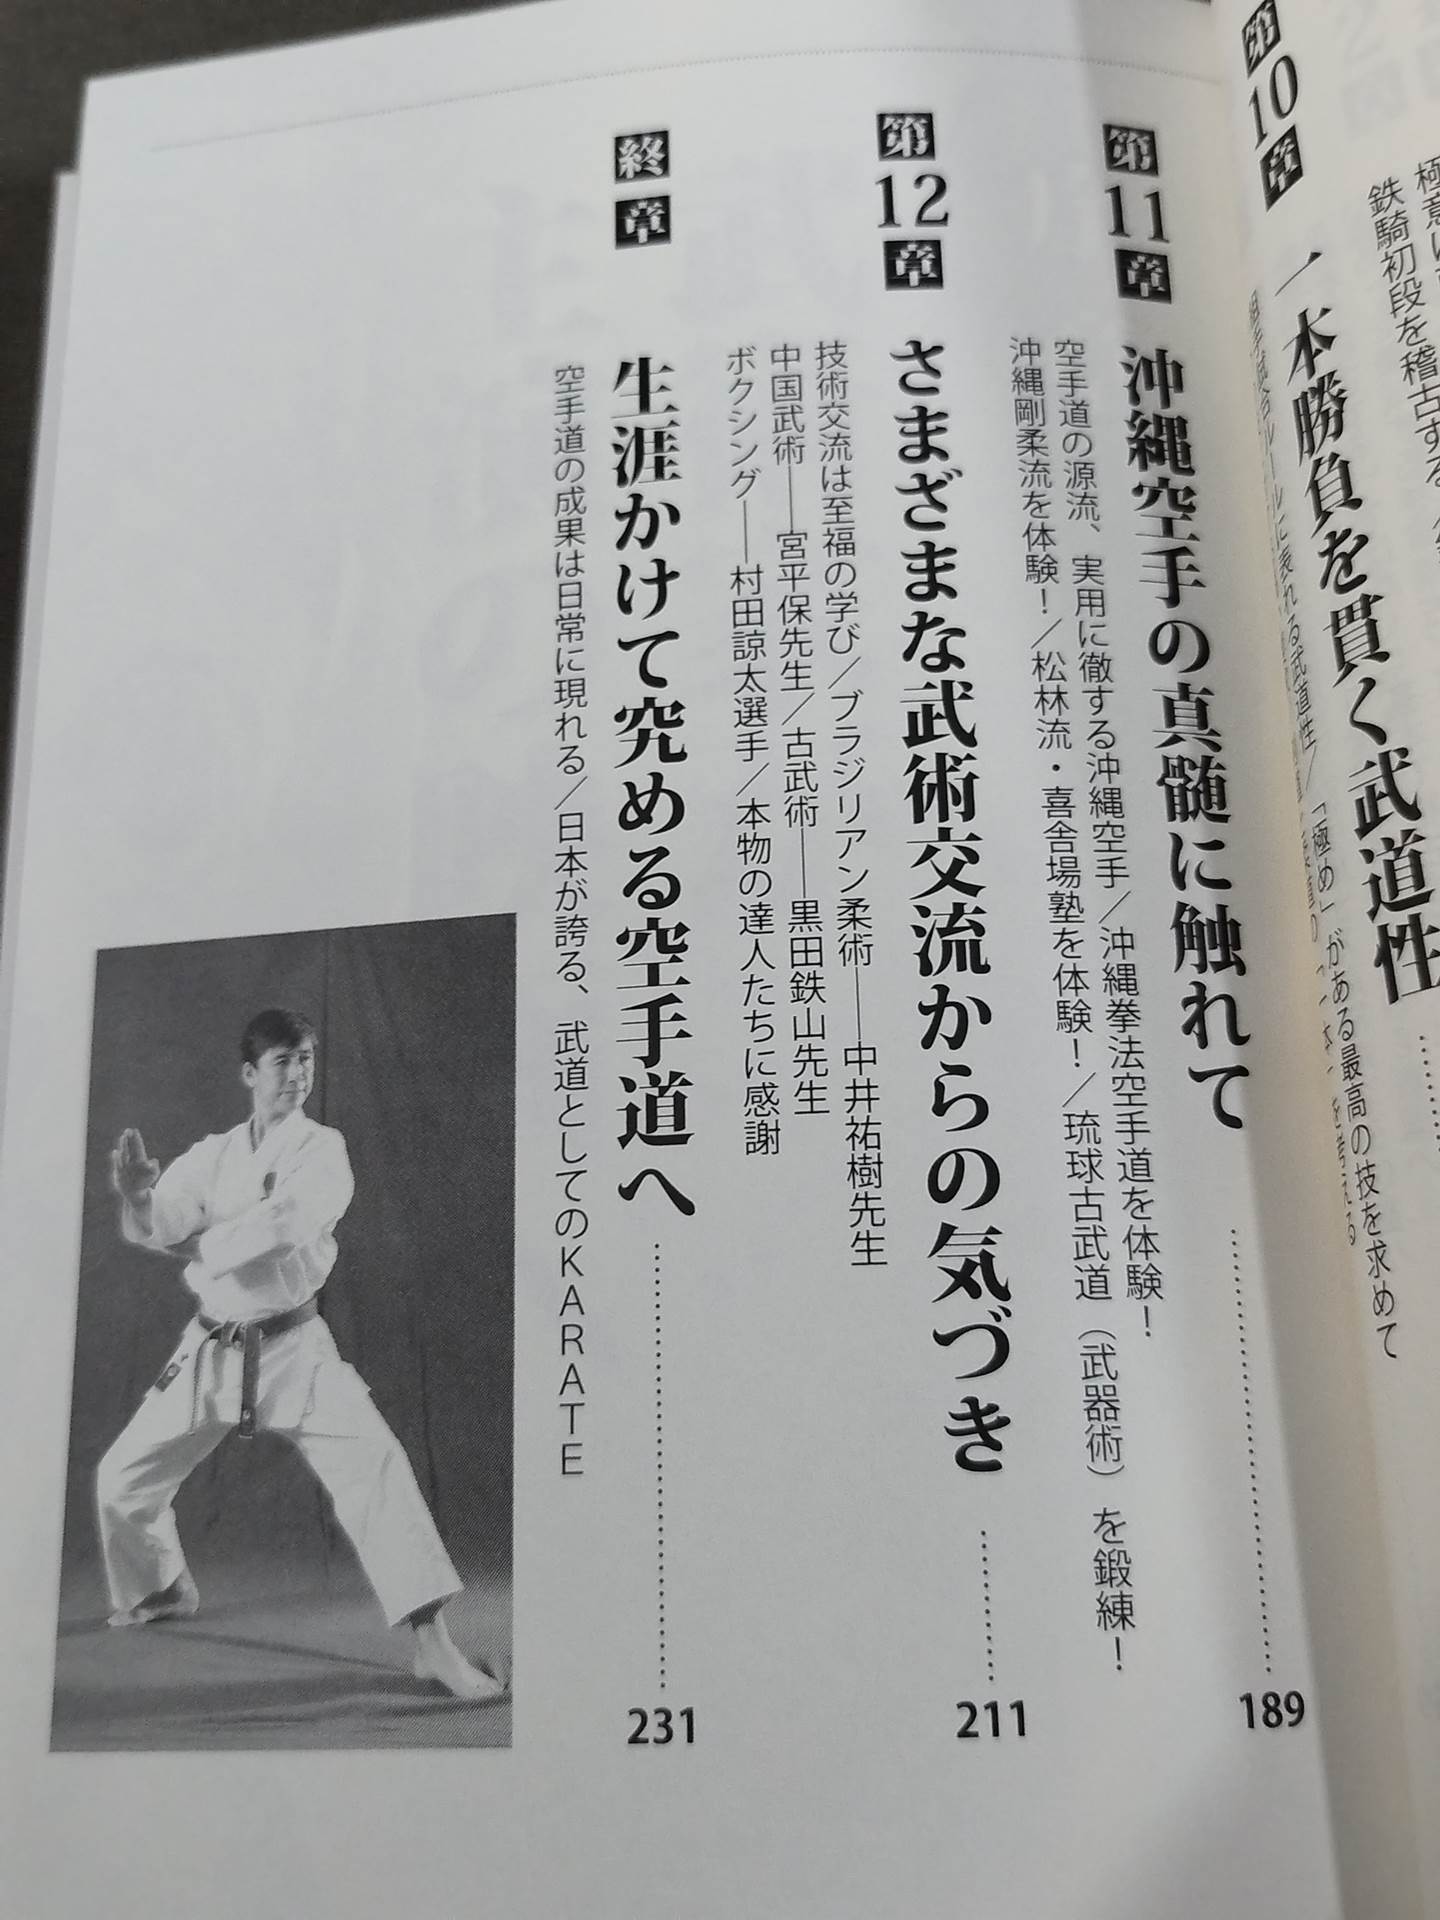 鉄騎初段を稽古する
第10章 一本勝負を貫く武道性
「極め」がある最高の技を求めて
第11章 沖縄空手の真髄に触れて 189
空手道の源流、実用に徹する沖縄空手／沖縄拳法空手道を体験！
沖縄剛柔流を体験！／松林流・喜舎場塾を体験！／琉球古武道（武器術）を鍛練！
第12章 さまざまな武術交流からの気づき 211
技術交流は至福の学び／ブラジリアン柔術――中井祐樹先生
中国武術――宮平保先生／古武術――黒田鉄山先生
ボクシング――村田諒太選手／本物の達人たちに感謝
終章 生涯かけて究める空手道へ 231
空手道の成果は日常に現れる／日本が誇る、武道としてのKARATE